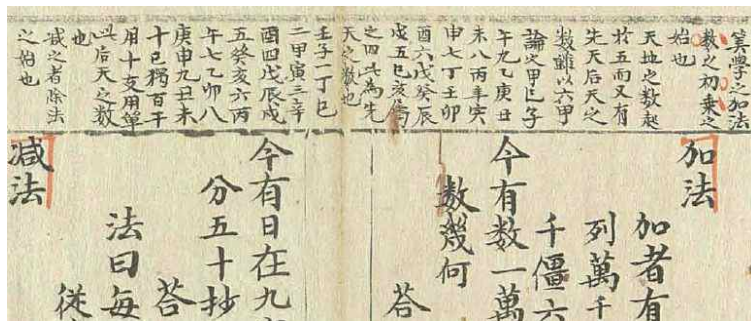 筭學之加法
数之初乗之
始也
天地之数起
於五而又有
先天后天之
数雖以六甲
論文甲己子
午九乙庚丑
未八丙辛寅
申七丁壬卯
酉六戊癸辰
戌五巳亥属
之四此為先
天之数也
壬子一丁巳
二甲寅三辛
酉四戊辰戌
五癸亥六丙
午七乙卯八
庚申九丑未
十己獨百千
用十支用單
此后天之数
也
减之者除法
之始也
加法
加者有
列萬千
千僵六
今有数一萬
数幾何
荅
今有日在九
分五十抄
荅
法曰每
從
减法